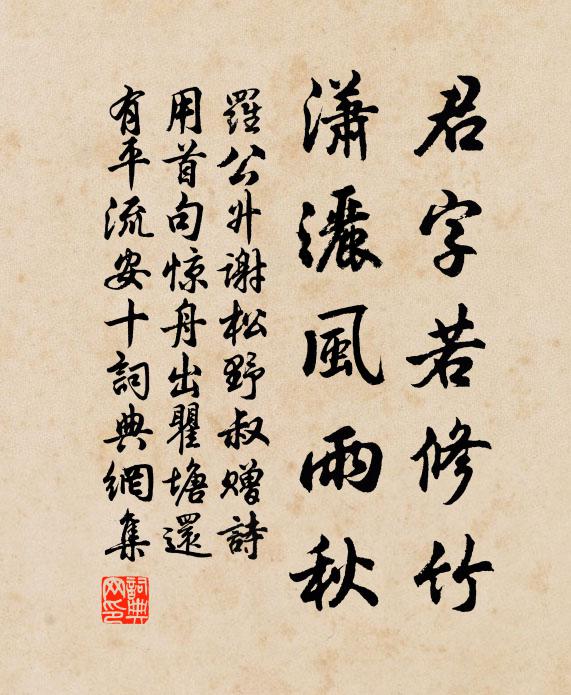 君字若修竹
瀟灑風雨秋
羅公升謝松野叔贈詩
用首句惊舟出瞿塘還
有平流安十詞典網集
詞典
网印